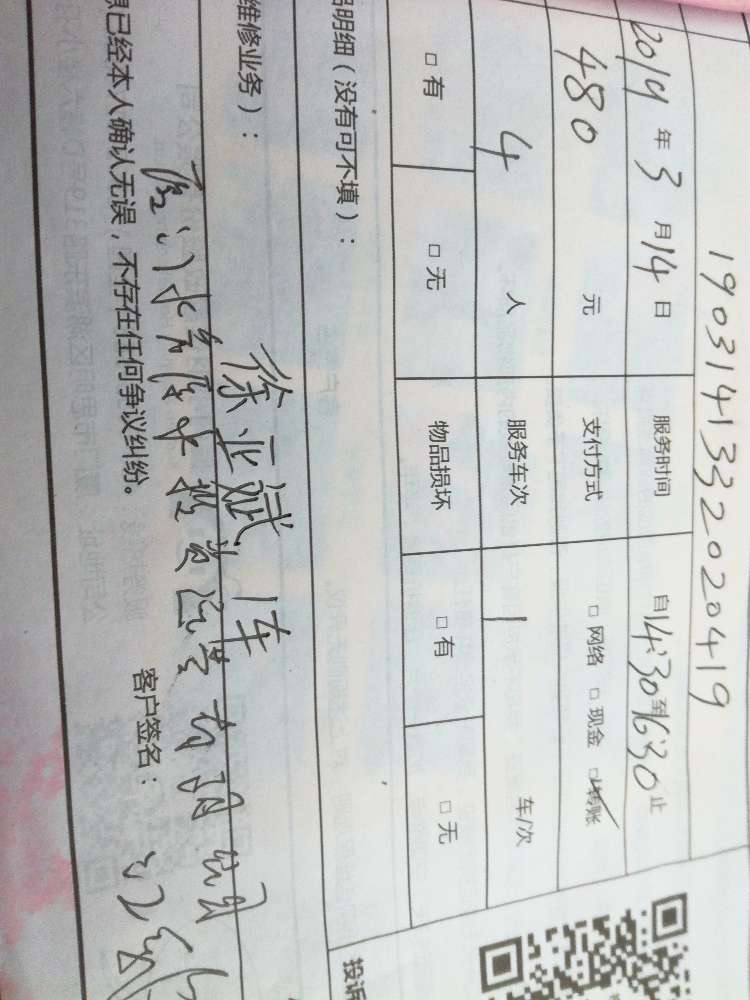 190314133202 0419
2019年3月14日 服务时间 自14:30到16:30止
480元 支付方式 □网络 □现金 □转账
4人 服务车次 1 车/次
□有 □无 物品损坏 □有 □无
明细（没有可不填）：
维修业务）：
徐亚斌 1车
有限公司
已经本人确认无误，不存在任何争议纠纷。 客户签名：
投诉